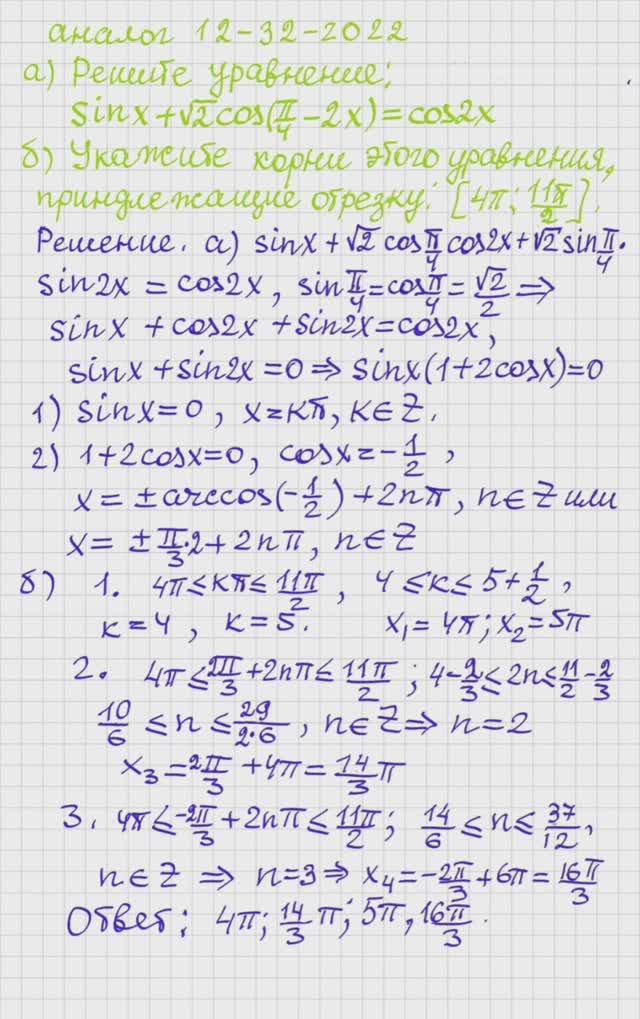 аналог 12-32-2022
а) Решите уравнение:
sinx+√2cos(π/4-2x)=cos2x
б) Укажите корни этого уравнения,
принадлежащие отрезку: [4π; 11π/2].
Решение. а) sinx+√2 cosπ/4 cos2x+√2 sinπ/4·
sin2x = cos2x, sinπ/4=cosπ/4=√2/2 ⇒
sinx +cos2x +sin2x=cos2x,
sinx+sin2x=0⇒sinx(1+2cosx)=0
1) sinx=0, x=kπ, k∈Z.
2) 1+2cosx=0, cosx=-1/2,
x=±arccos(-1/2)+2nπ, n∈Z или
x= ±π/3·2+2nπ, n∈Z
б) 1. 4π≤kπ≤11π/2, 4≤k≤5+1/2,
k=4, k=5. x₁=4π; x₂=5π
2. 4π≤2π/3+2nπ≤11π/2; 4-2/3≤2n≤11/2-2/3
10/6≤n≤29/2·6, n∈Z⇒ n=2
x₃=2π/3+4π=14/3π
3. 4π≤-2π/3+2nπ≤11π/2; 14/6≤n≤37/12,
n∈Z ⇒ n=3⇒ x₄=-2π/3+6π=16π/3
Ответ: 4π; 14/3π; 5π, 16π/3.